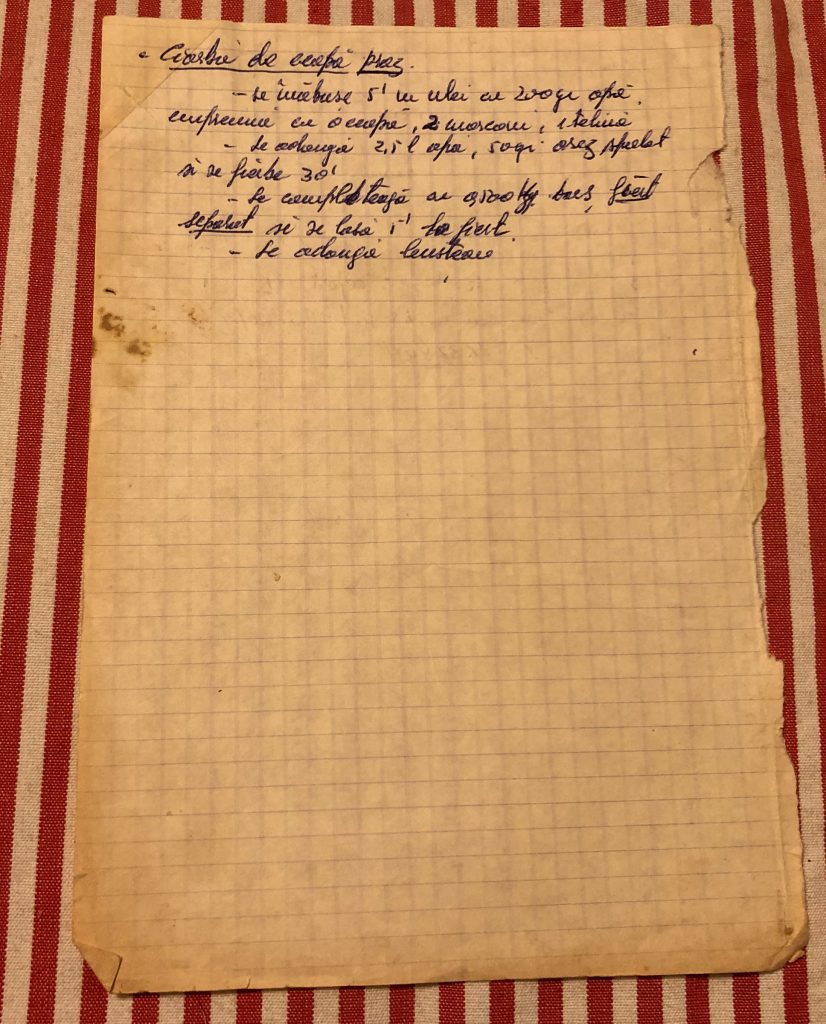 • Ciorbă de ceapă praz.
- se înăbuse 5' în ulei cu 200gr apă,
împreună cu o ceapă, 2 morcovi, 1 telină
- Se adaugă 2,5 l apă, 50gr orez spălat
si se fierbe 30'
- Se completează cu 0,500 kg bors fiert
separat si se lasă 5' la fiert
- Se adaugă leustean